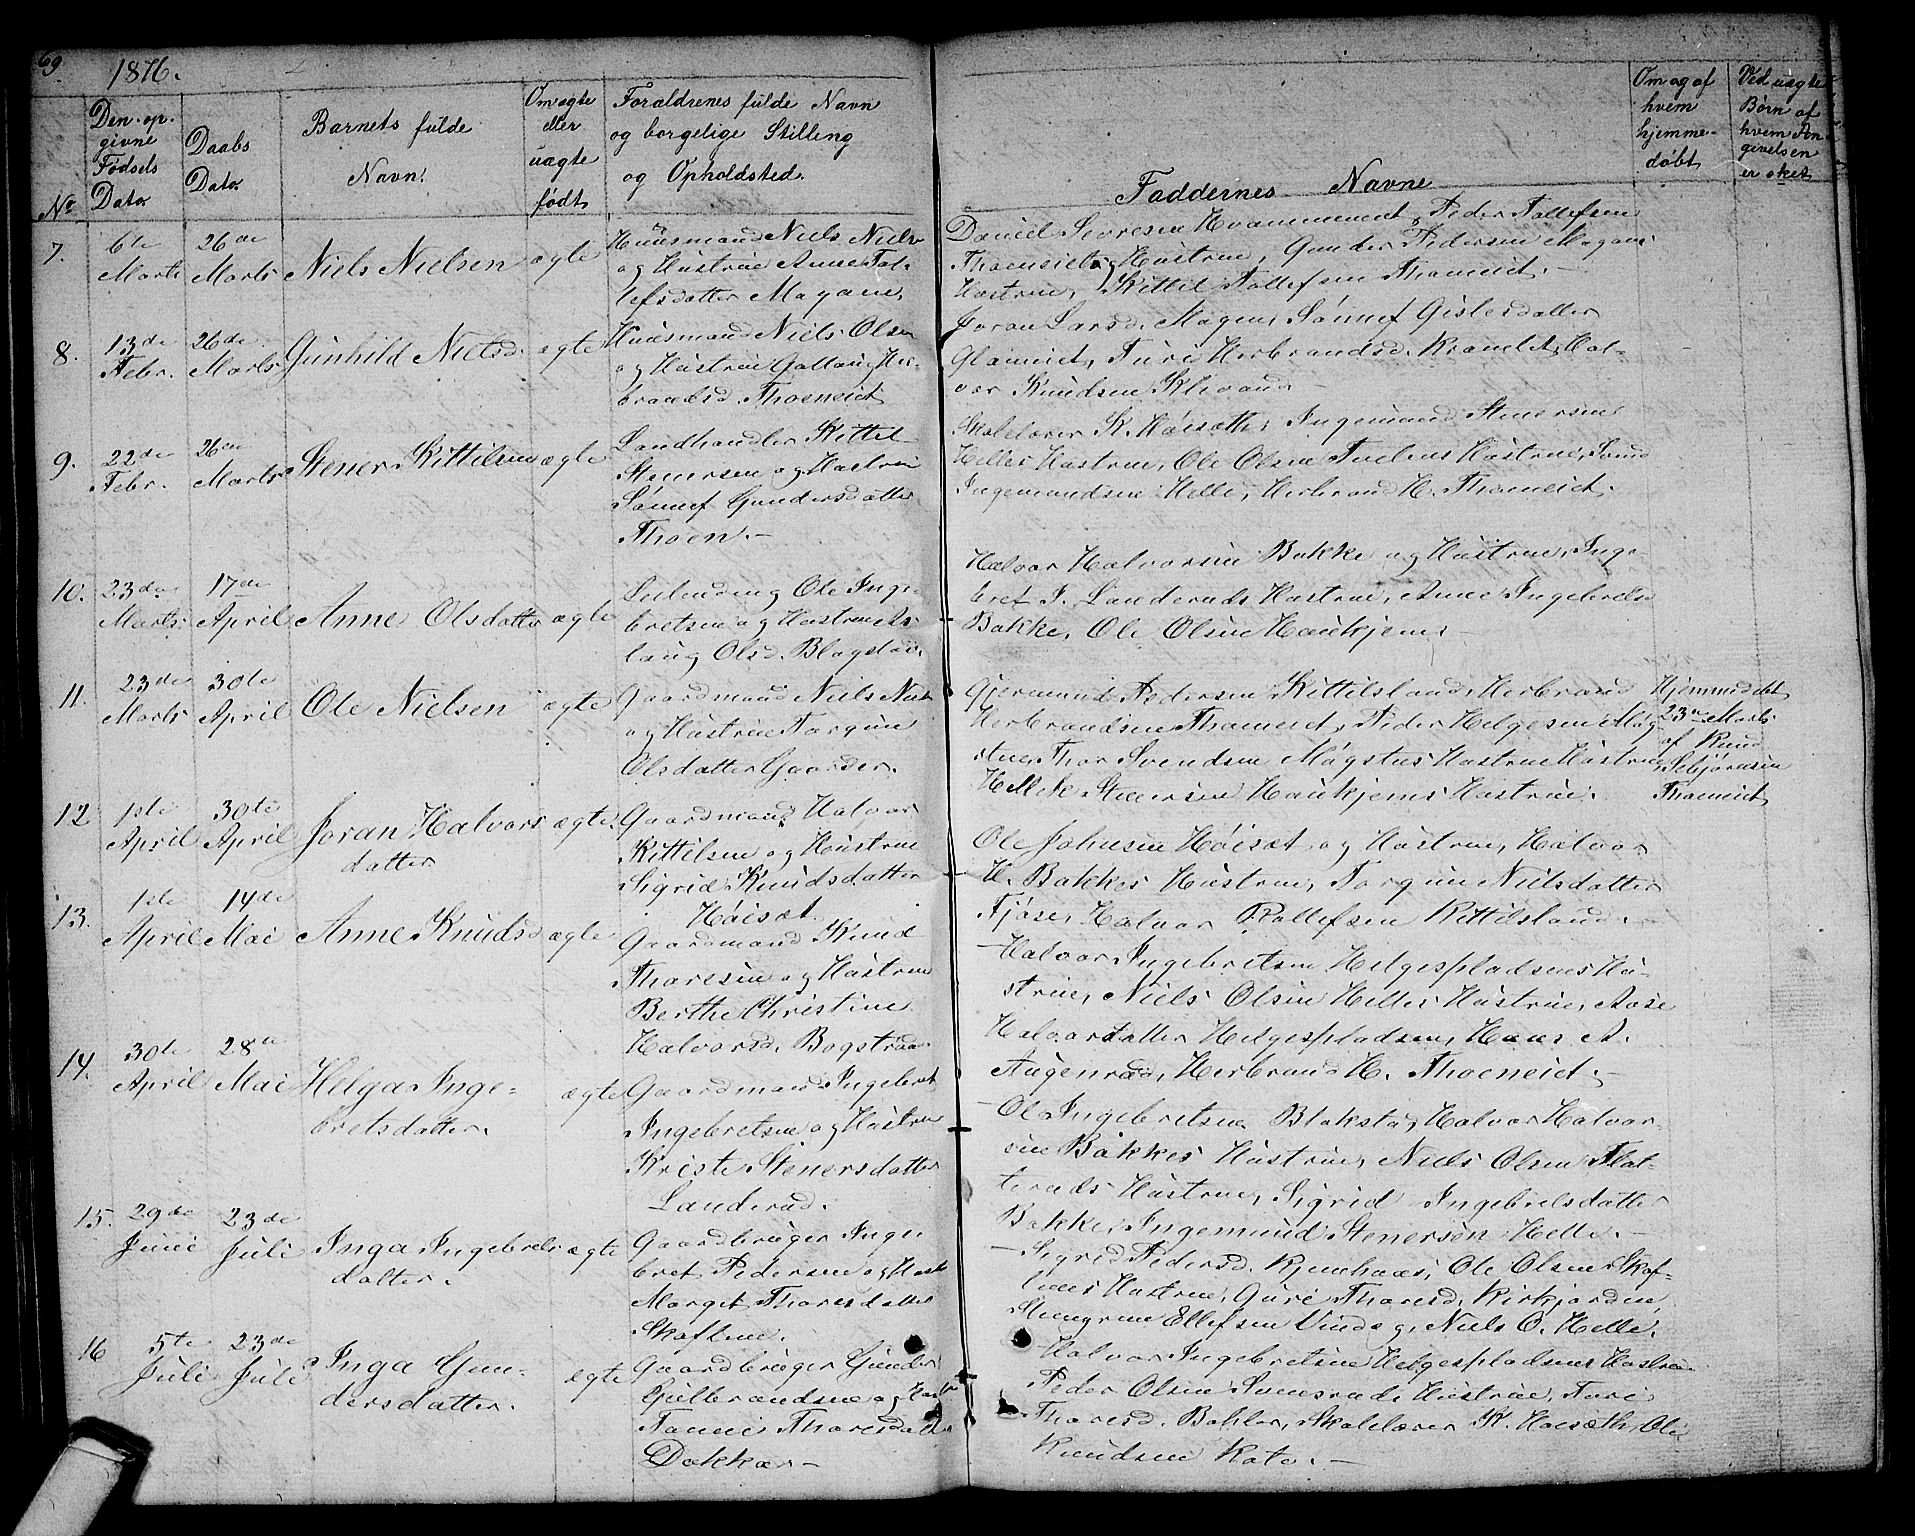 69
1876.
No
Den op-
givne
Fødsels
Dato
Daabs
Dato
Barnets fulde
Navn.
Om ægte
eller
uægte
født
Forældrenes fulde Navn
og borgelige Stilling
og Opholdsted.
Faddernes Navne
Om og af
hvem
hjemme-
døbt
Ved uægte
Børn af
hvem An-
givelsen
er skeet
7.
6te
Marts
26de
Marts
Niels Nielsen
ægte
Huusmand Niels Niels
og Hustrue Anne Tol-
lefsdatter MoGane.
Daniel Hvammement, Peder Tollefsen
Thoeneiets Hustrue, Gunder Pedersen Mogans
Hustrue, Kittil Tollefsen Thoeneiet.-
8.
13de
Febr.
26de
Marts
Gunhild Nielsd.
ægte
Huusmand Niels Olsen
og Hustrue Gollaug Her-
brandsd. Thoeneiet
Joran Larsd. Mogen, Sønnef Gislesdatter
Turi Herbrandsd. Hal-
vor Knudsen
9.
22de
Febr.
26de
Marts
Stener Kittilsen
ægte
Landhandler Kittel
Stenersen og Hustrue
Sønnef Gundersdatter
Thoen.-
Skolelærer K. Høisæth, Ingemund Stenersen
Helles Hustrue, Ole Olsen Hustrue,
Ingemundsen Helle, Herbrand H. Thoeneiet.
10.
23de
Marts
17de
April
Anne Olsdatter
ægte
Leilending Ole Inge-
bretsen og Hustrue As-
laug Olsd. Blagstad.
Halvor Halvorsen Bakke og Hustrue, Inge-
bret I. Landeruds Hustrue, Anne Ingebretsd
Bakke, Ole Olsen Haukjem,-
11.
23de
Marts
30te
April
Ole Nielsen
ægte
Gaardmand Niels Niels
og Hustrue Torgune
Olsdatter Gaarder.
Gjermund Pedersen Kittilsland, Herbrand
Herbrandsen Thoeneiet, Peder Helgesen Møg-
stue, Thor Svendsen Møgstus Hustrue Hustrue
Hellek Stenersen Haukjems Hustrue.
Hjemmedøbt
23de Marts
af Knud
Thoeneiet
12
1ste
April
30te
April
Joran Halvors
datter
ægte.
Gaardmand Halvor
Kittilsen og Hustrue
Sigrid Knudsdatter
Høisæt.
Ole Johnsen Høisæt og Hustrue, Halvor
H. Bakkes Hustrue, Torgun Nielsdatter
Fjøse, Halvor Rollefsen Kittilsland.
13.
1ste
April
14de
Mai
Anne Knudsd
ægte
Gaardmand Knud
Thoresen og Hustrue
Berthe Christine
Halvorsd. Bogstraa.
- Halvor Ingebretsen Helgespladsens Hu-
strue, Niels Olsen Helles Hustrue, Aase
Halvorsdatter Helgespladsen, Hans A.
Augenrud, Herbrand H. Thoeneiet.-
14.
30te
April
28de
Mai
Helga Inge-
bretsdatter.
ægte
Gaardmand Ingebret
Ingebretsen og Hustrue
Kriste Stenersdatter
Landerud.
- Ole Ingebretsen Blakstag, Halvor Halvor-
sen Bakkes Hustrue, Niels Olsen Flat-
teruds Hustrue, Sigrid Ingebretsdatter
Bakke, Ingemund Stenersen Helle.-
15.
29de
Juni
23de
Juli
Inga Ingebrets
datter.
ægte
Gaardbruger Inge-
bret Pedersen og Hust
Marget Thoresdatter
Skaftnæ.
- Sigrid Pedersd. Kjemhuus, Ole Olsen Skaf-
næs Hustrue, Guri Thoresd. Kirkjorden,
Stengrim Ellefsen Vindeg, Niels O. Helle.
16
5te
Juli
23de
Juli
Inga Gun-
dersdatter.
ægte
Gaardbruger Gunder
Gulbrandsen og Hustr
Tonne Thoresdatter
Dokkær-
Halvor Ingebretsen Helgespladsens Hustrue
Peder Olsen Hustrue, Turi
Thoresd. Skolelærer K. Høisæth, Ole
Knudsen Kate.-